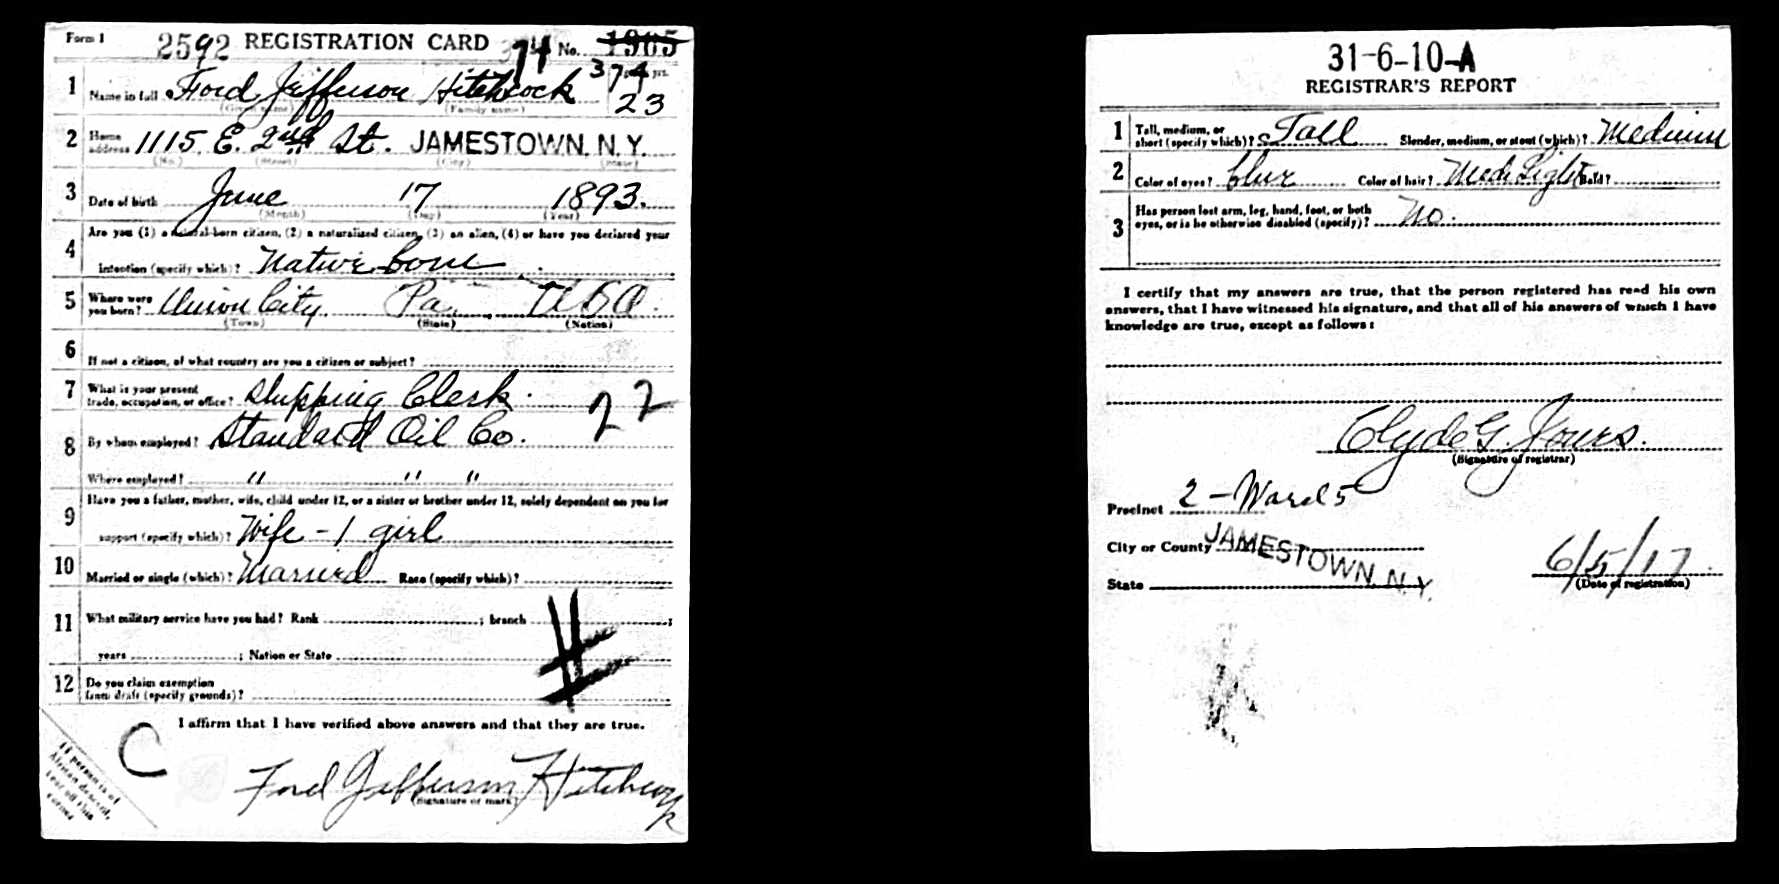 Form 1 2592 REGISTRATION CARD 374 No. 1965
1 Name in full Ford Jefferson Hitchcock 374 Age, in yrs. 23
(Given name) (Family name)
2 Home address 1115 E. 2nd St. JAMESTOWN, N.Y.
(No.) (Street) (City) (State)
3 Date of birth June 17 1893.
(Month) (Day) (Year)
4 Are you (1) a natural-born citizen, (2) a naturalized citizen, (3) an alien, (4) or have you declared your
intention (specify which)? Native born
5 Where were you born? Union City Pa. USA.
(Town) (State) (Nation)
6 If not a citizen, of what country are you a citizen or subject?
7 What is your present trade, occupation, or office? Shipping Clerk. 22
8 By whom employed? Standard Oil Co.
Where employed? " " "
9 Have you a father, mother, wife, child under 12, or a sister or brother under 12, solely dependent on you for
support (specify which)? Wife - 1 girl
10 Married or single (which)? Married Race (specify which)?
11 What military service have you had? Rank ; branch ;
years ; Nation or State
12 Do you claim exemption from draft (specify grounds)?
I affirm that I have verified above answers and that they are true.
C
Ford Jefferson Hitchcock
(Signature or mark)
If person is of
African descent,
tear off this
corner
31-6-10-A
REGISTRAR'S REPORT
1 Tall, medium, or short (specify which)? Tall Slender, medium, or stout (which)? Medium
2 Color of eyes? blue Color of hair? Med Light Bald?
3 Has person lost arm, leg, hand, foot, or both
eyes, or is he otherwise disabled (specify)? No.
I certify that my answers are true, that the person registered has read his own
answers, that I have witnessed his signature, and that all of his answers of which I have
knowledge are true, except as follows:
Clyde G. Jones.
(Signature of registrar)
Precinct 2 - Ward 5
City or County JAMESTOWN, N.Y.
State
6/5/17
(Date of registration)